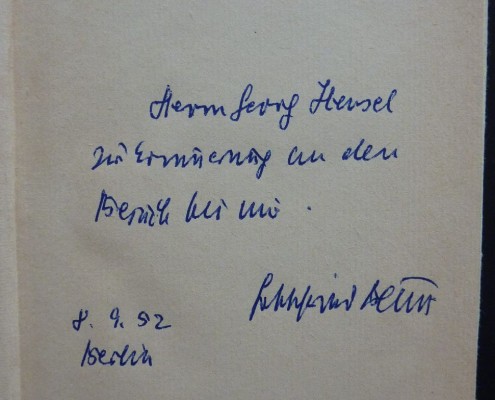 Herrn Georg Hensel
zur Erinnerung an den
Besuch bei mir.
Gottfried Benn
8. 9. 52
Berlin